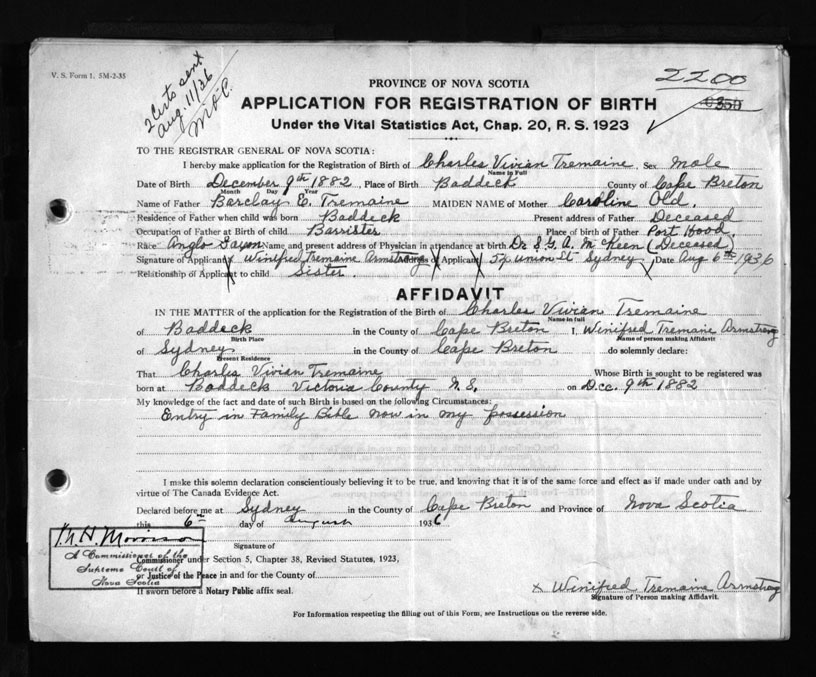 V. S. Form 1. 5M-2-35
2 Certs sent
Aug. 11/36
2200
PROVINCE OF NOVA SCOTIA
APPLICATION FOR REGISTRATION OF BIRTH
Under the Vital Statistics Act, Chap. 20, R. S. 1923
TO THE REGISTRAR GENERAL OF NOVA SCOTIA:
I hereby make application for the Registration of Birth of Charles Vivian Tremaine Sex Male
Name in Full
Date of Birth December 9th 1882, Place of Birth Baddeck County of Cape Breton
Month Day Year
Name of Father Barclay E. Tremaine MAIDEN NAME of Mother Caroline Old.
Residence of Father when child was born Baddeck Present address of Father Deceased
Occupation of Father at Birth of child Barrister Place of birth of Father Port Hood.
Race Anglo Saxon Name and present address of Physician in attendance at birth Dr. S. G. A. McKeen (Deceased)
Signature of Applicant X Winifred Tremaine Armstrong Address of Applicant 54 Union St Sydney Date Aug 6th 1936
Relationship of Applicant to child Sister.
AFFIDAVIT
IN THE MATTER of the application for the Registration of the Birth of Charles Vivian Tremaine
Name in full
of Baddeck in the County of Cape Breton I, Winifred Tremaine Armstrong
Birth Place Name of person making Affidavit
of Sydney in the County of Cape Breton do solemnly declare:
Present Residence
That Charles Vivian Tremaine Whose Birth is sought to be registered was
born at Baddeck Victoria County N.S. on Dec. 9th 1882
My knowledge of the fact and date of such Birth is based on the following Circumstances:
Entry in Family Bible now in my possession
I make this solemn declaration conscientiously believing it to be true, and knowing that it is of the same force and effect as if made under oath and by
virtue of The Canada Evidence Act.
Declared before me at Sydney in the County of Cape Breton and Province of Nova Scotia
this 6th day of August 1936
M. H. Morrison
Signature of
A Commissioner of the
Supreme Court of
Nova Scotia
Commissioner under Section 5, Chapter 38, Revised Statutes, 1923,
or Justice of the Peace in and for the County of
If sworn before a Notary Public affix seal.
X Winifred Tremaine Armstrong
Signature of Person making Affidavit.
For Information respecting the filling out of this Form, see Instructions on the reverse side.